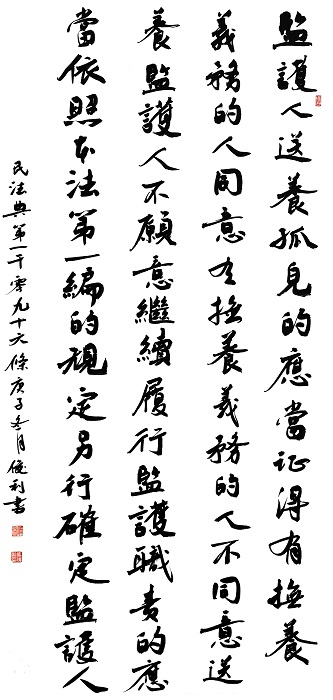 監護人送養孤兒的應當征得有撫養
義務的人同意有撫養義務的人不同意送
養監護人不願意繼續履行監護職責的應
當依照本法第一編的規定另行確定監護人
民法典第一千零九十六條庚子冬月俊利書